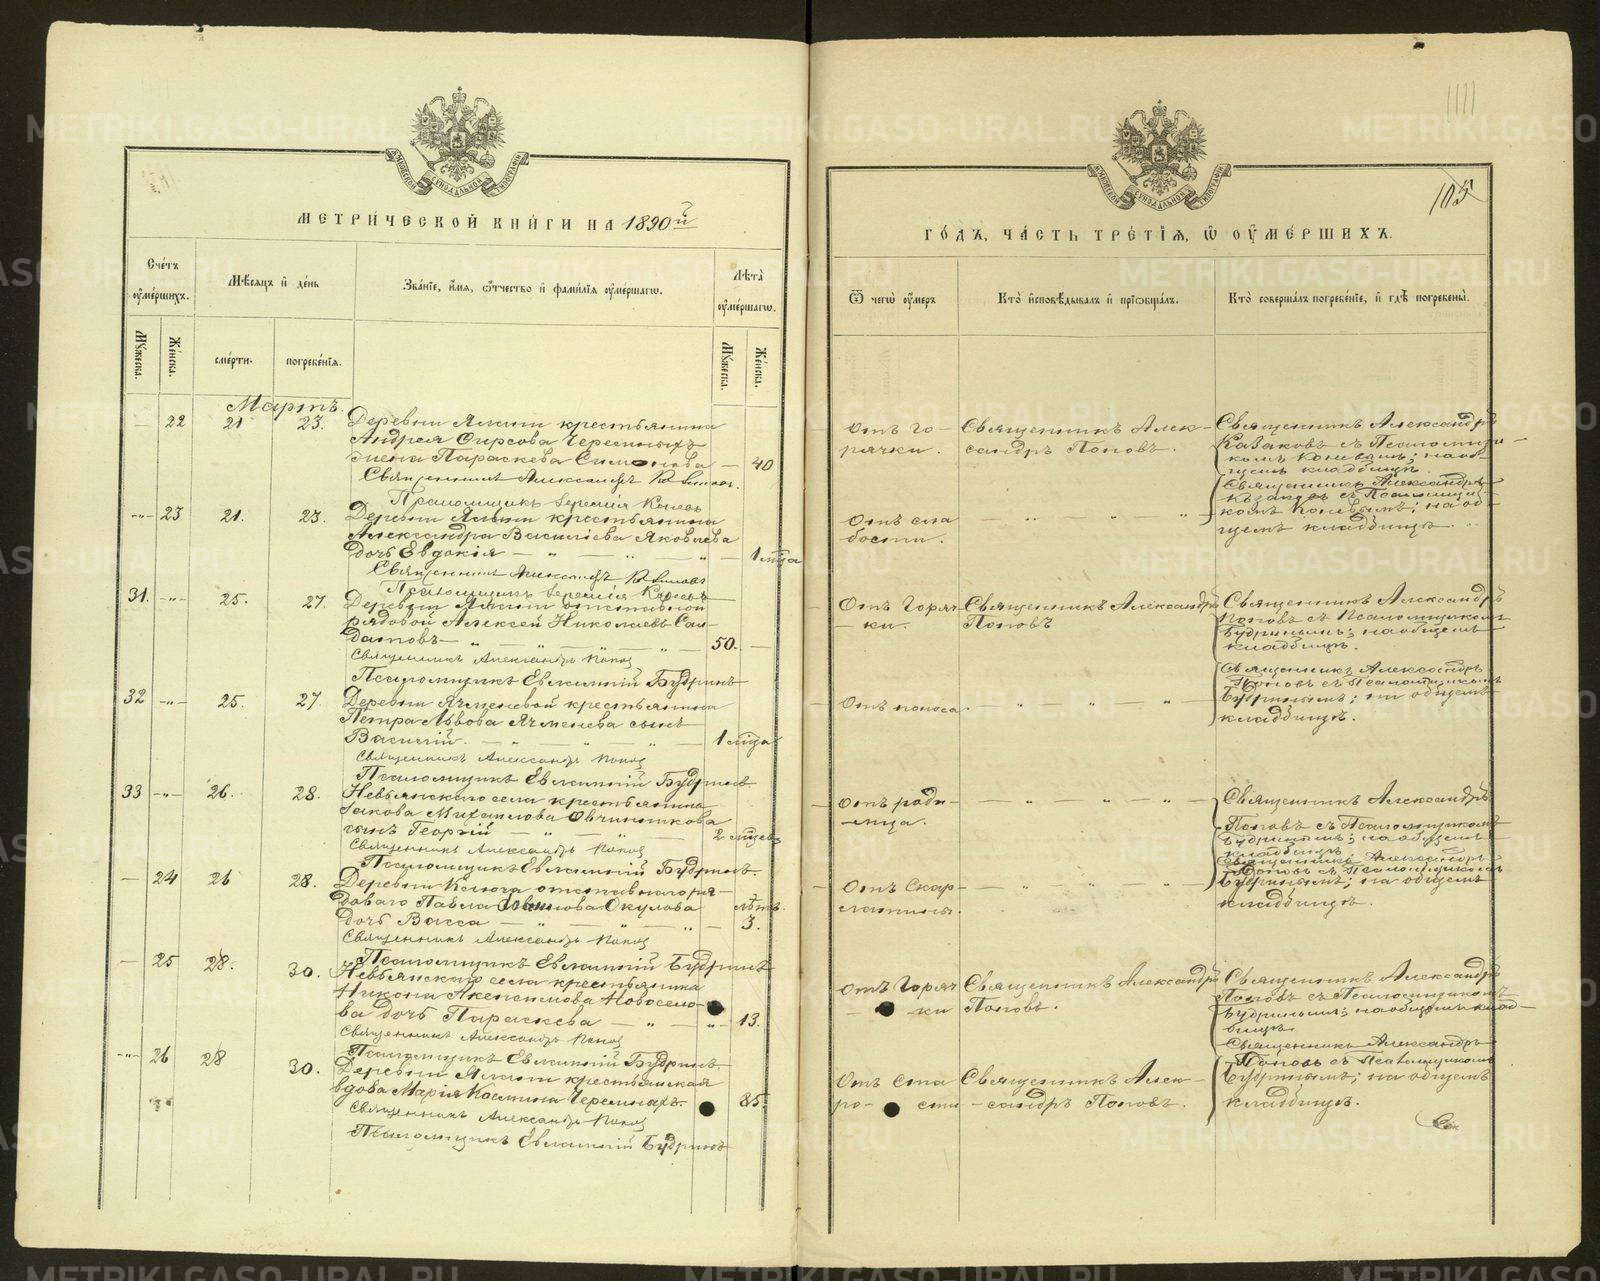 МЕТРИЧЕСКОЙ КНИГИ НА 1890й
Счетъ умершихъ.
Мѣсяцъ и день
Званіе, имя, отчество и фамилія умершаго.
Лѣта умершаго.
Мужеска.
Женска.
смерти.
погребенія.
Мужеска.
Женска.
Мартъ.
— 22 21 23. Деревни крестьянина
Андрея Черемныхъ
жена Параскева Симонова — 40
Священникъ Александръ
Псаломщикъ Іеремія Коневъ
-"- 23 21. 23. Деревни крестьянина
Александра Василіева Яковлева
дочь Евдокія — " — " — " — 1 мца
Священникъ Александръ
Псаломщикъ Іеремія Коневъ
31. -"- 25. 27. Деревни отставной
рядовой Алексей Николаевъ Сол-
датовъ — " — " — " — 50. —
Священникъ Александръ Попов
Псаломщикъ Евлампій Будринъ
32 -"- 25. 27. Деревни Ячменевой крестьянина
Петра Львова Ячменева сынъ
Василій. — " — " — " — 1 мца
Священникъ Александръ Попов
Псаломщикъ Евлампій Будринъ
33 -"- 26. 28. Невьянскаго села крестьянина
Іакова Михаилова Овчинникова
сынъ Георгій — " — " — 2 мцев
Священникъ Александръ Попов
Псаломщикъ Евлампій Будринъ.
— 24 26 28. Деревни Ключа отставнаго ря-
доваго Павла Окулова лѣтъ.
дочь Васса — " — " — 3.
Священникъ Александръ Попов
Псаломщикъ Евлампій Будринъ
— 25 28. 30. Невьянскаго села крестьянина
Никона Новосело-
ва дочь Параскева — " — " — 13.
Священникъ Александръ Попов
Псаломщикъ Евлампій Будринъ
-"- 26 28 30. Деревни крестьянская
вдова Марія Космина Черемныхъ. 85.
Священникъ Александръ Попов
Псаломщикъ Евлампій Будринъ
105
ГОДЪ, ЧАСТЬ ТРЕТІЯ, Ѿ УМЕРШИХЪ.
Ѿ чегѡ умеръ
Кто исповѣдывалъ и пріобщалъ.
Кто совершалъ погребеніе, и гдѣ погребены.
Отъ го-
рячки.
Священникъ Алек-
сандръ Поповъ.
Священникъ Александръ
Казаковъ съ Псаломщи-
комъ Коневымъ; на об-
щемъ кладбищѣ.
Отъ сла
бости.
Священникъ Александръ
Казаковъ съ Псаломщи-
комъ Коневымъ; на об-
щемъ кладбищѣ.
Отъ Горяч-
ки.
Священникъ Александръ
Поповъ
Священникъ Александръ
Поповъ съ Псаломщикомъ
Будринымъ; на общемъ
кладбищѣ.
Отъ поноса.
Священникъ Александръ
Поповъ съ Псаломщикомъ
Будринымъ; на общемъ
кладбищѣ.
Отъ роди-
мца.
Священникъ Александръ
Поповъ съ Псаломщикомъ
Будринымъ; на общемъ
кладбищѣ.
Отъ Скар-
латины.
Священникъ Александръ
Поповъ съ Псаломщикомъ
Будринымъ; на общемъ
кладбищѣ.
Отъ Горяч
ки
Священникъ Александръ
Поповъ.
Священникъ Александръ
Поповъ съ Псаломщикомъ
Будринымъ; на общемъ клад-
бищѣ.
Отъ ста
ро- сти
Священникъ Алек-
сандръ Поповъ.
Священникъ Александръ
Поповъ съ Псаломщикомъ
Будринымъ; на общемъ
кладбищѣ.
METRIKI.GASO-URAL.RU